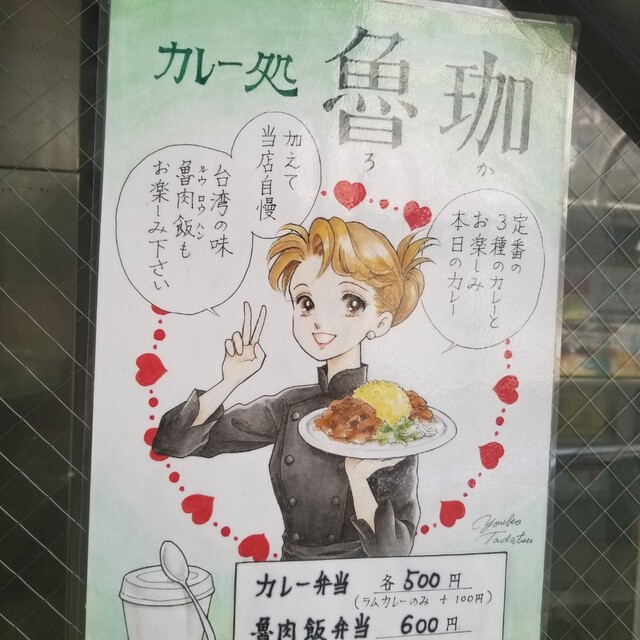 カレー処 魯珈
ろ か
定番の
3種のカレーと
お楽しみ
本日のカレー
加えて
当店自慢
台湾の味
魯肉飯も
ルウ ロウ ハン
お楽しみ下さい
Youko
Tadatsu
カレー弁当 各500円
(ラムカレーのみ +100円)
魯肉飯弁当 600円